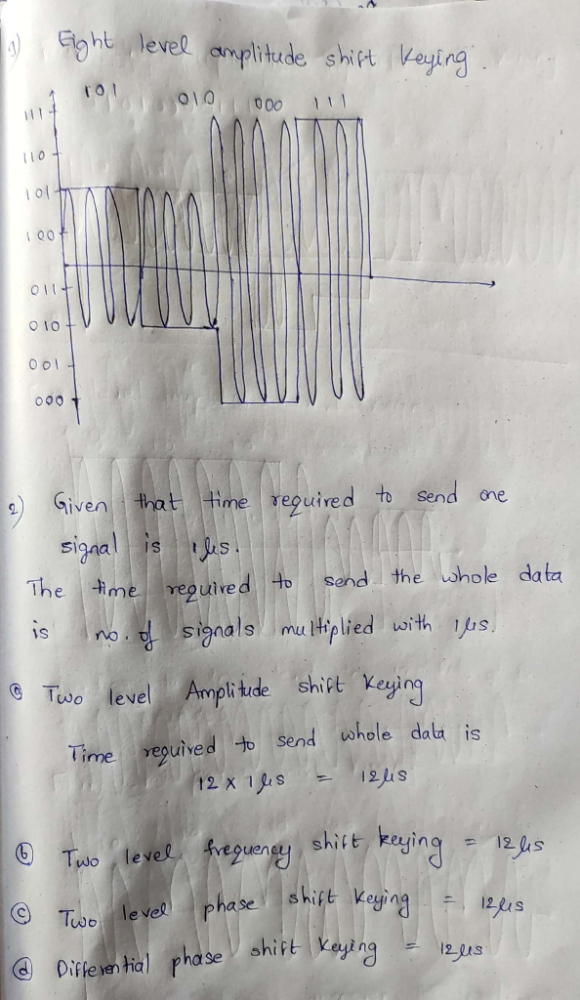 1) Eight level amplitude shift keying.
101 010 000 111
111
110
101
100
011
010
001
000
2) Given that time required to send one
signal is 1 μs.
The time required to send the whole data
is no. of signals multiplied with 1 μs.
ⓐ Two level Amplitude shift keying
Time required to send whole data is
12 x 1 μs = 12 μs
ⓑ Two level frequency shift keying = 12 μs
ⓒ Two level phase shift keying = 12 μs
ⓓ Differential phase shift keying = 12 μs